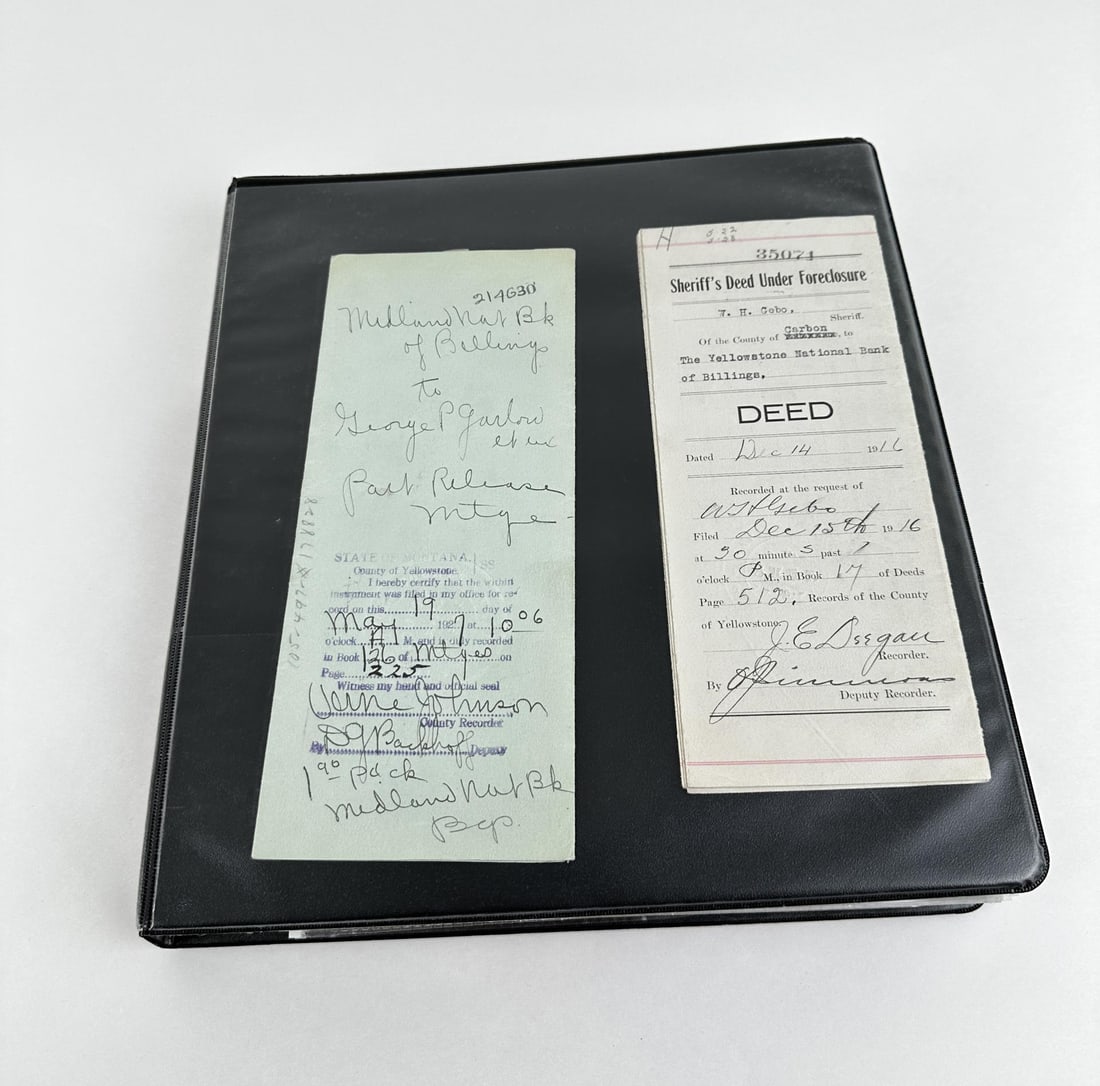 214630
Midland Nat Bk
of Billings
to
George P Garlow
et ux
Part Release
Mtge
STATE OF MONTANA,
County of Yellowstone.
I hereby certify that the within
instrument was filed in my office for re-
cord on this 19 day of
May 1927 at 10 06
o'clock A M. and is duly recorded
in Book 126 of Mtges on
Page 225
Witness my hand and official seal
Verne Johnson
County Recorder
By D J Bachhoff Deputy
1 90 pd ck
Midland Nat Bk
H
35074
Sheriff's Deed Under Foreclosure
T. H. Gebo,
Sheriff.
Of the County of Carbon, to
The Yellowstone National Bank
of Billings,
DEED
Dated Dec 14 1916
Recorded at the request of
Filed Dec 15th 1916
at 30 minutes past 1
o'clock P M., in Book 17 of Deeds
Page 512, Records of the County
of Yellowstone.
J E Deegan
Recorder.
By Simmons
Deputy Recorder.